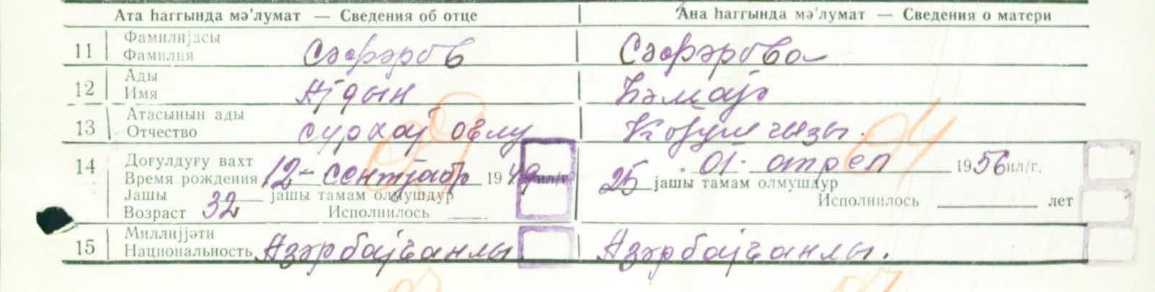 Ата һаггында мә'лумат — Сведения об отце
Ана һаггында мә'лумат — Сведения о матери
11 Фамилијасы
Фамилия
Сәфәров
Сәфәрова
12 Ады
Имя
Ајдын
13 Атасынын ады
Отчество
Сурхај оғлу
гызы.
14 Доғулдуғу вахт
Время рождения 12 - сентјабр 1949 ил/г.
01. апрел 1956 ил/г.
Јашы
Возраст 32 јашы тамам олмушдур
Исполнилось
25 јашы тамам олмушдур
Исполнилось лет
15 Миллијјәти
Национальность Азәрбајҹанлы
Азәрбајҹанлы.